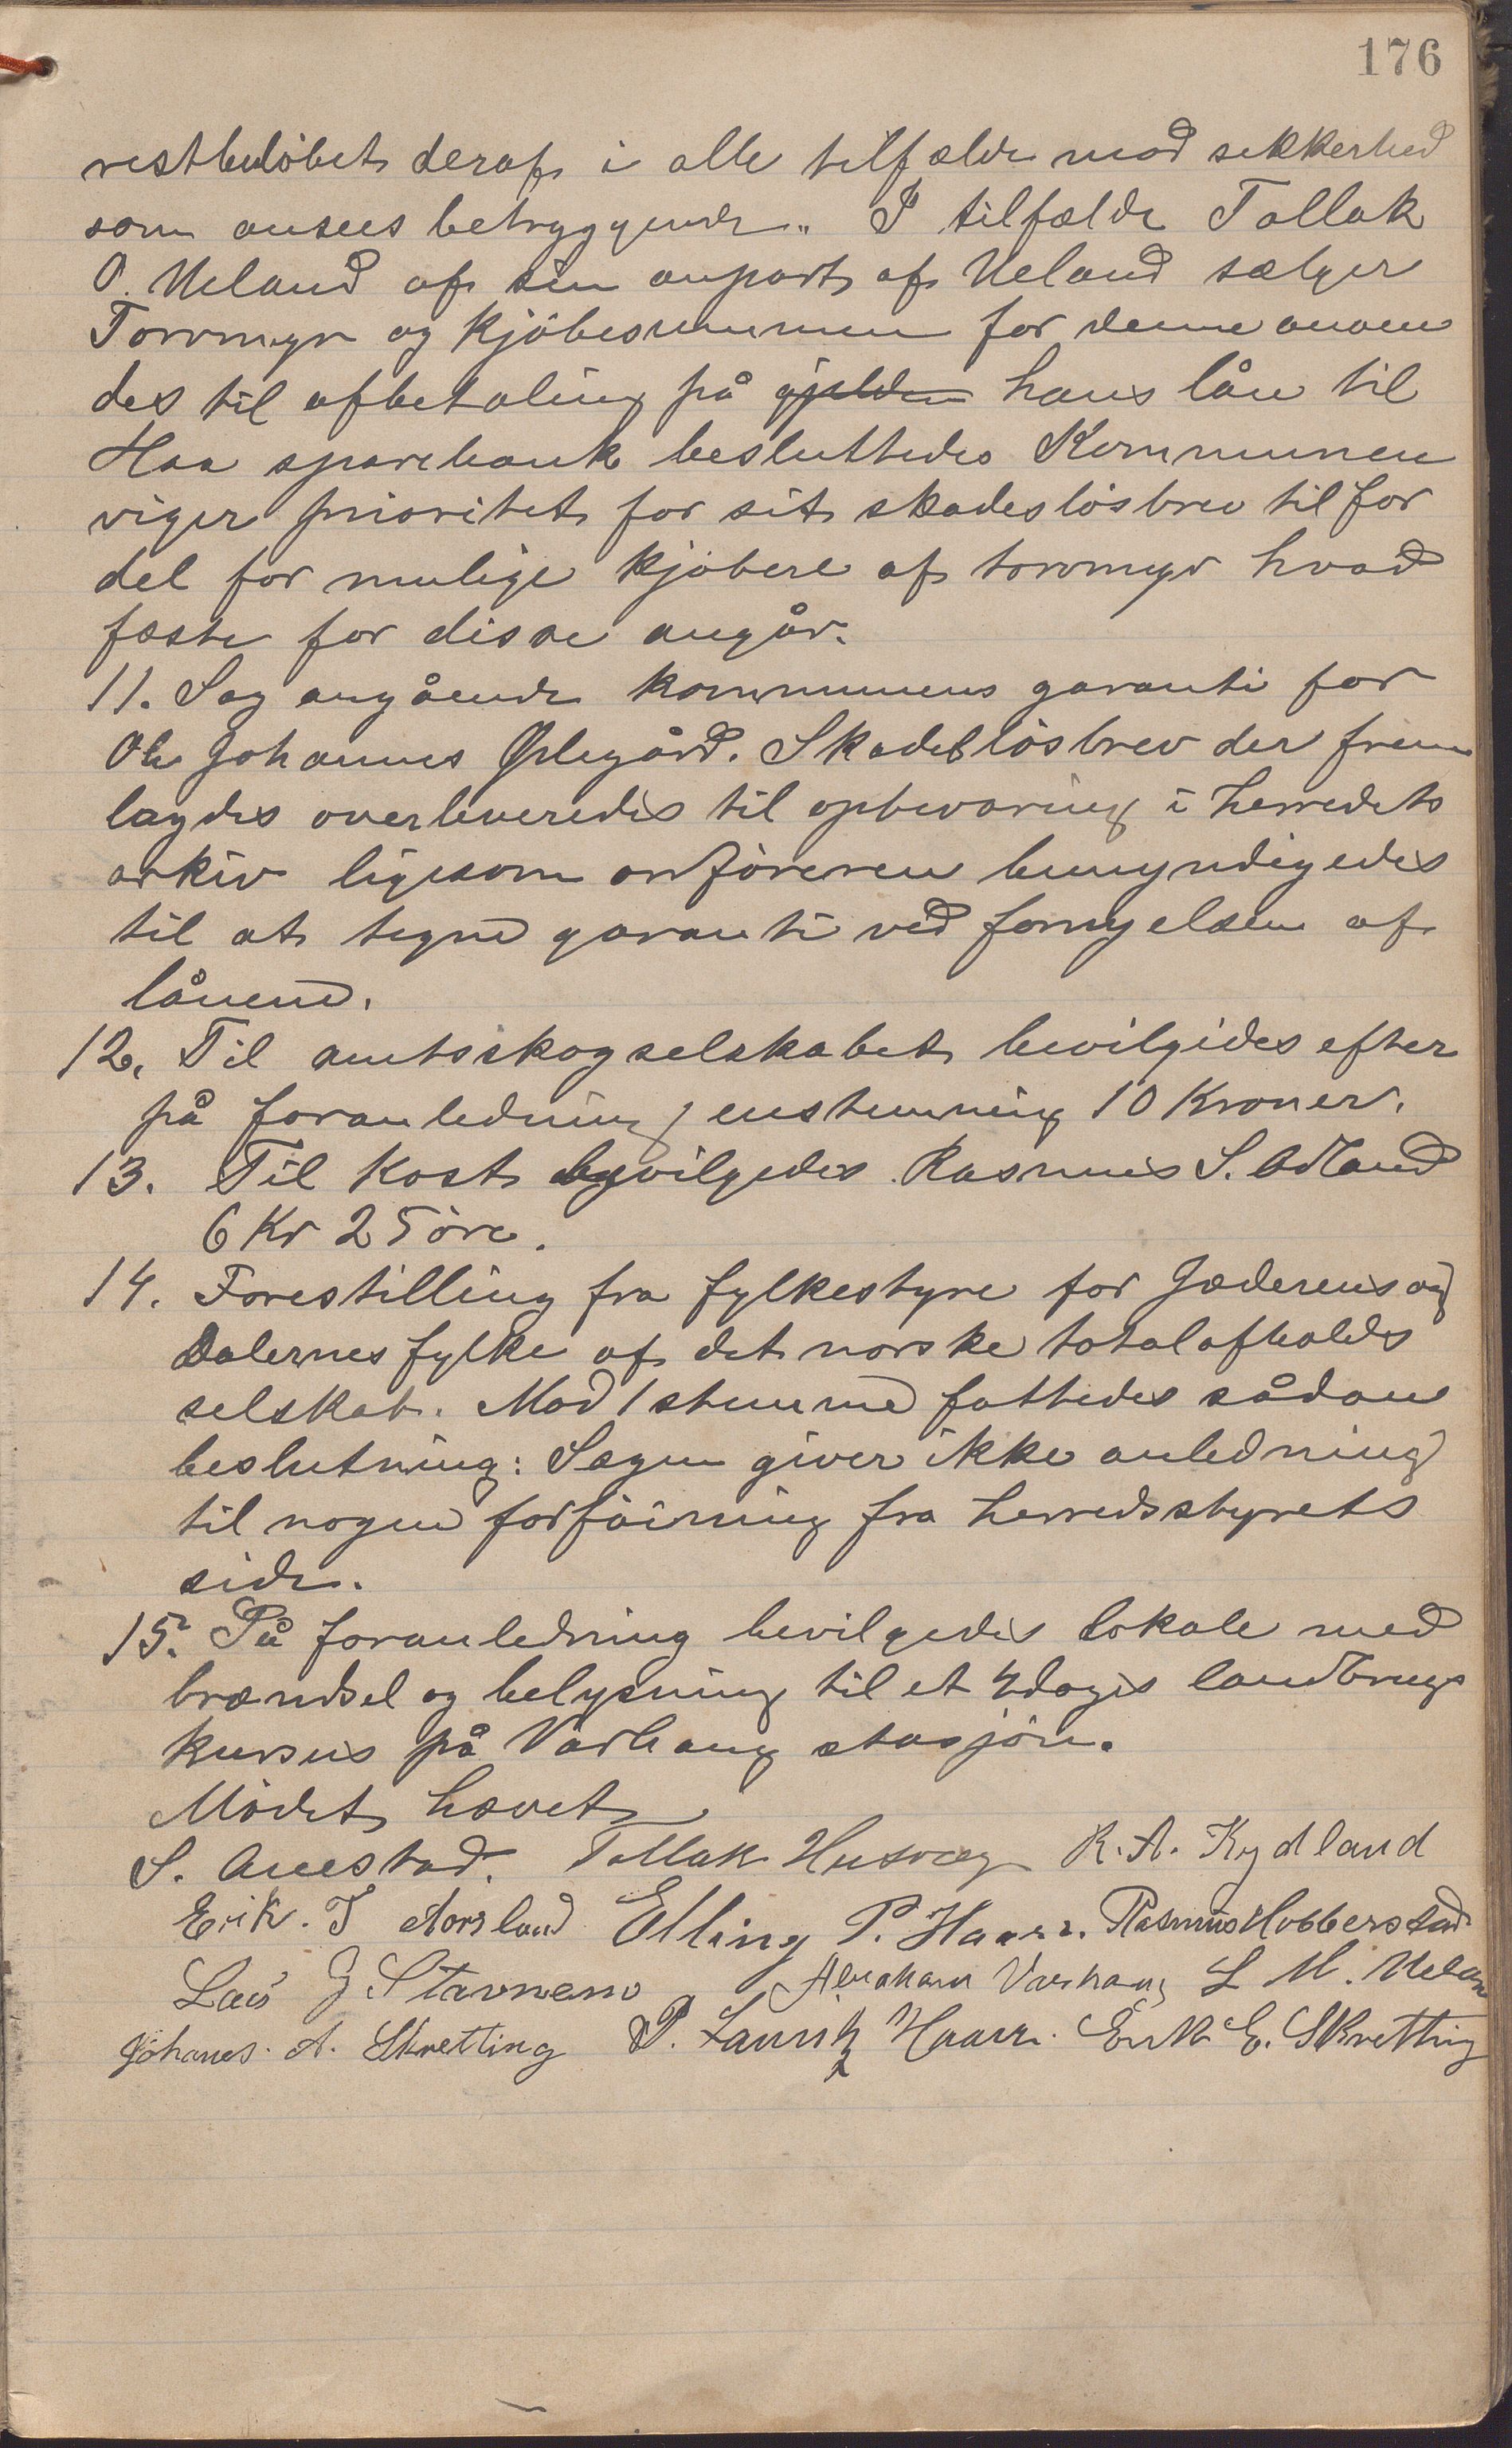 176
restbeløbet deraf i alle tilfælde mod sikkerhed
som ansees betryggende." I tilfælde Tollak
O. Ueland af sin anpart af Ueland sælger
Torvmyr og kjøbesummen for denne anven
des til afbetaling på gjelden hans lån til
Haa sparebank besluttedes Kommunen
viger prioritet for sit skadesløsbrev til for
del for mulige kjøbere af torvmyr hvad
fæste for disse angår.
11. Sag angående kommunens garanti for
Ole Johannes Ødegård. Skadesløsbrev der frem
lagdes overleveredes til opbevaring i herredets
arkiv ligesom ordføreren bemyndigedes
til at tegne garanti ved fornyelsen af
lånene.
12. Til amtsskogselskabet bevilgedes efter
på foranledning enstemmig 10 Kroner.
13. Til Kost bevilgedes Rasmus S. Odland
6 Kr 25 øre.
14. Forestilling fra fylkestyre for Jæderens og
Dalernes fylke af det norske totalafholds
selskab. Mod 1 stemme fattedes sådan
beslutning: Sagen giver ikke anledning
til nogen forføining fra herredsstyrets
side.
15. På foranledning bevilgedes lokale med
brændsel og belysning til et 4 dages landbrugs
kursus på Varhaug stasjon.
Mødet hævet
S. Auestad. Tollak Husvæg R. A. Kydland
Erik. T Aorsland Elling P. Haarr. Rasmus Hobberstad
Lars G Stavnem Abraham Varhaug L M. Uelan
Johanes. A. Skretting P. Lauritz Haarr. Erik E. Skretting